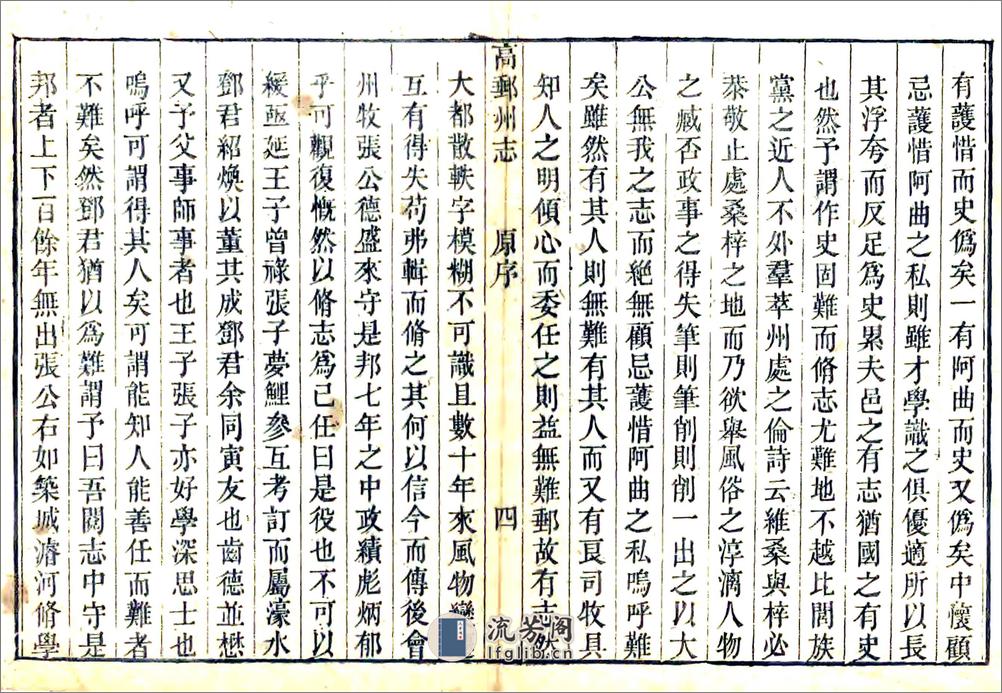 有護惜而史僞矣一有阿曲而史又僞矣中懷顧
忌護惜阿曲之私則雖才學識之俱優適所以長
其浮夸而反足爲史累夫邑之有志猶國之有史
也然予謂作史固難而脩志尤難地不越比閭族
黨之近人不外羣萃州處之倫詩云維桑與梓必
恭敬止處桑梓之地而乃欲舉風俗之淳漓人物
之臧否政事之得失筆則筆削則削一出之以大
公無我之志而絕無顧忌護惜阿曲之私嗚呼難
矣雖然有其人則無難有其人而又有良司牧具
知人之明傾心而委任之則益無難郵故有志然
高郵州志 原序 四
大都散軼字模糊不可識且數十年來風物
互有得失苟弗輯而脩之其何以信今而傳後會
州牧張公德盛來守是邦七年之中政績彪炳郁
乎可觀復慨然以脩志爲己任曰是役也不可以
緩亟延王子曾祿張子夢鯉參互考訂而屬濠水
鄧君紹煥以董其成鄧君余同寅友也齒德並懋
又予父事師事者也王子張子亦好學深思士也
嗚呼可謂得其人矣可謂能知人能善任而難者
不難矣然鄧君猶以爲難謂予曰吾閱志中守是
邦者上下百餘年無出張公右如築城濬河脩學
流芳阁
lfglib.cn